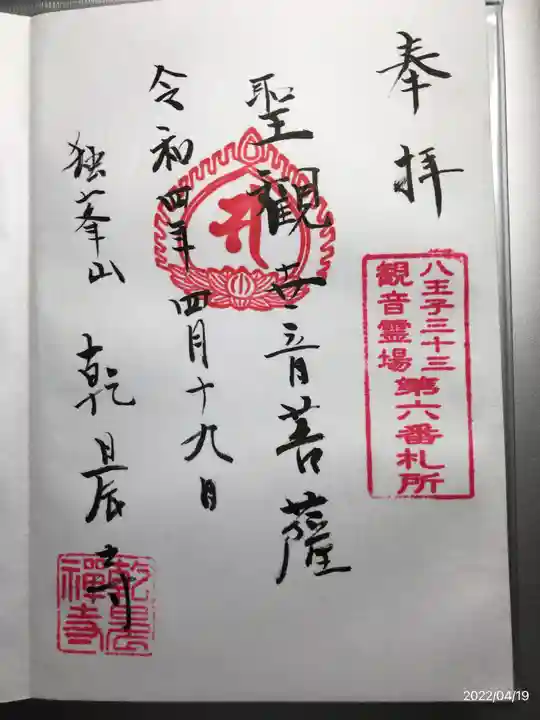 奉拝
八王子三十三
観音霊場
第六番札所
聖観世音菩薩
令和四年四月十九日
独峯山 乾晨寺
乾晨禪寺
2022/04/19